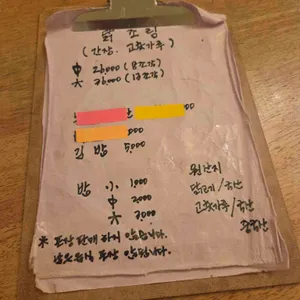 닭 조림
(간장, 고춧가루)
中 26,000 (8조각)
大 36,000 (12조각)
000
김밥 5,000
밥 小 1,000
中 2,000
大 3,000
원산지
닭고기/국산
고춧가루/국산
중국산
※ 포장 판매 하지 않습니다.
남은음식 포장 않됩니다.